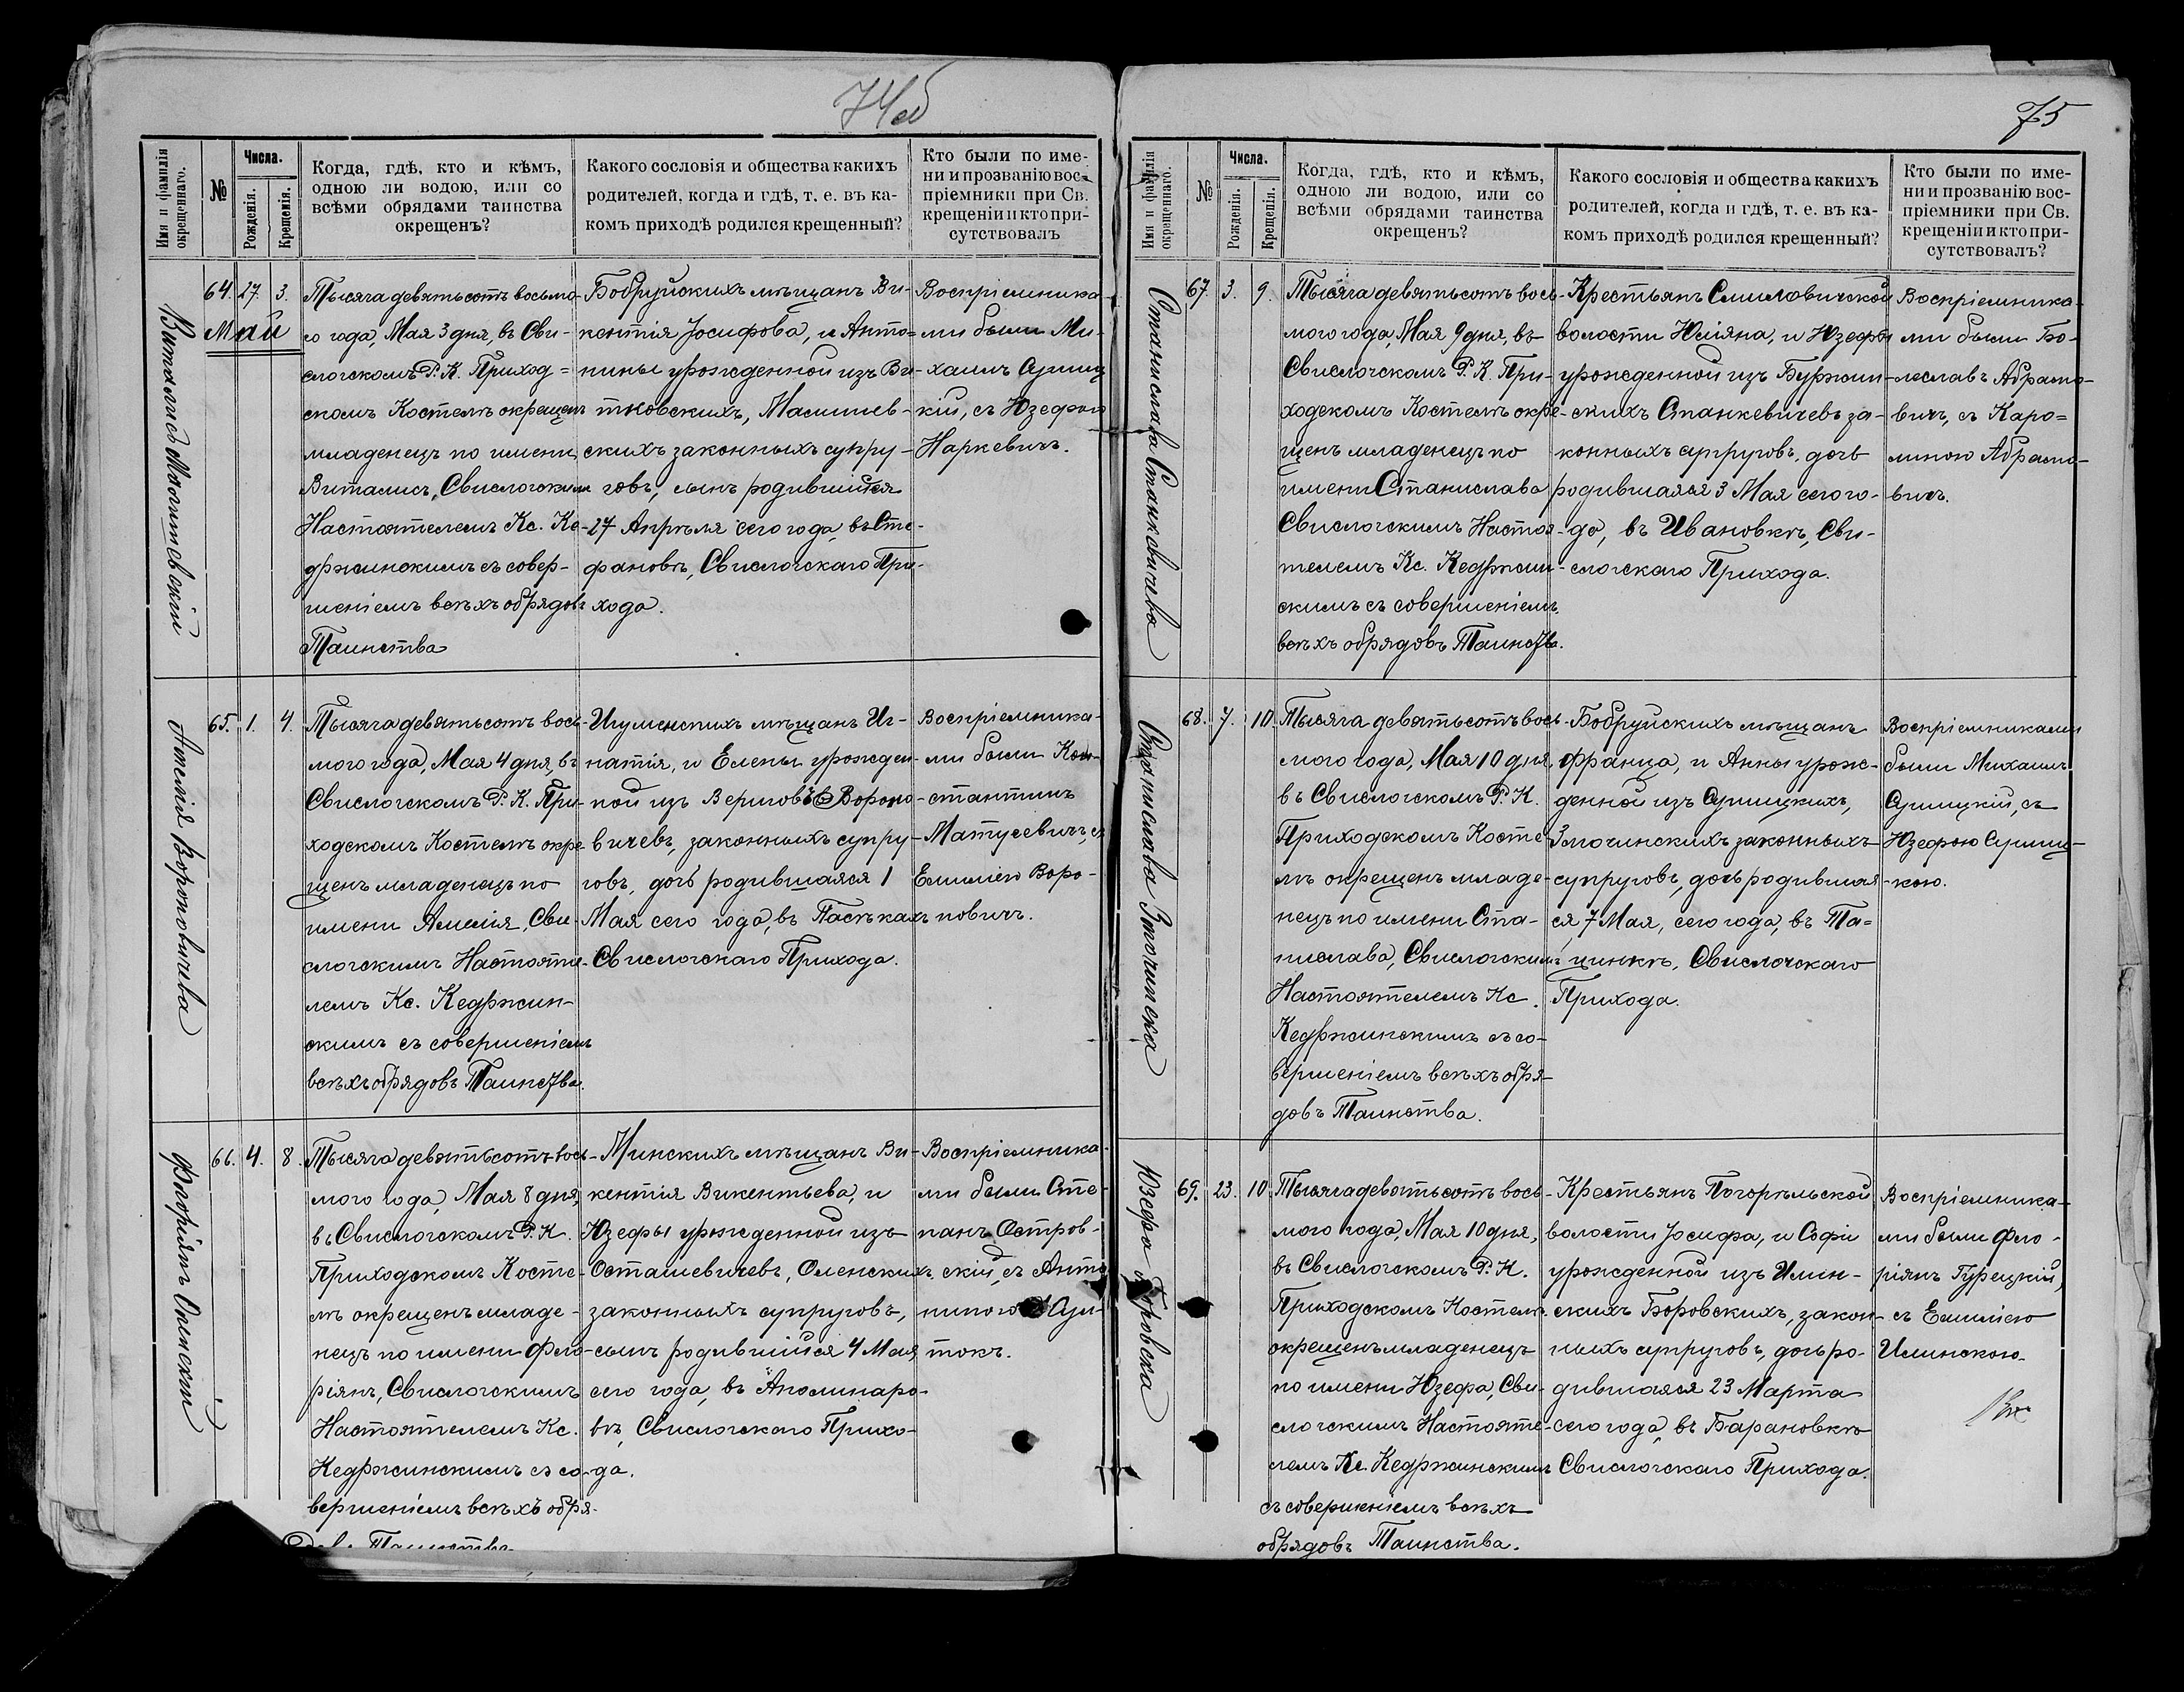 74об
Имя и фамилія окрещеннаго.
№
Числа.
Рожденія.
Крещенія.
Когда, гдѣ, кто и кѣмъ,
одною ли водою, или со
всѣми обрядами таинства
окрещенъ?
Какого сословія и общества какихъ
родителей, когда и гдѣ, т. е. въ ка-
комъ приходѣ родился крещенный?
Кто были по име-
ни и прозванію вос-
пріемники при Св.
крещеніи и кто при-
сутствовалъ
64. 27. 3.
Май
Тысяча девятьсотъ восьмо-
го года, Мая 3 дня, въ Сви-
слочскомъ Р. К. Приход=
скомъ Костелѣ окрещенъ
младенецъ по имени
Виталисъ, Свислочскимъ
Настоятелемъ Кс. Ке-
држинскимъ съ совер-
шеніемъ всѣхъ обрядовъ
Таинства
Бобруйскихъ мѣщанъ Ви-
кентія Іосифова, и Анто-
нины урожденной изъ Ви-
тковскихъ,
скихъ законныхъ супру-
говъ, сынъ родившійся
27 Апрѣля сего года, въ Сте-
фановѣ, Свислочскаго При-
хода.
Воспріемника-
ми были Ми-
хаилъ Сушиц
кій, съ Юзефою
Наркевичъ.
Амелія Вороновичева
65. 1. 4.
Тысяча девятьсотъ вось-
мого года, Мая 4 дня, въ
Свислочскомъ Р. К. При-
ходскомъ Костелѣ окре-
щенъ младенецъ по
имени Амелія, Сви-
слочскимъ Настояте-
лемъ Кс. Кедржин-
скимъ съ совершеніемъ
всѣхъ обрядовъ Таинства
Игуменскихъ мѣщанъ Иг-
натія, и Елены урожден-
ной изъ Вериговъ Вороно-
вичевъ, законныхъ супру-
говъ, дочь родившаяся 1
Мая сего года, въ Пасѣкахъ
Свислочскаго Прихода.
Воспріемника-
ми были Кон-
стантинъ
Матусевичъ, съ
Емиліею Воро-
новичъ.
Флоріянъ Оленскій
66. 4. 8.
Тысяча девятьсотъ вось-
мого года, Мая 8 дня,
въ Свислочскомъ Р. К.
Приходскомъ Косте-
лѣ окрещенъ младе-
нецъ по имени Фло-
ріянъ, Свислочскимъ
Настоятелемъ Кс.
Кедржинскимъ съ со-
вершеніемъ всѣхъ обря-
довъ Таинства
Минскихъ мѣщанъ Ви-
кентія Викентьева, и
Юзефы урожденной изъ
Осташевичевъ, Оленскихъ
законныхъ супруговъ,
сынъ родившійся 4 Мая
сего года, въ Аполинаро-
вѣ, Свислочскаго Прихо-
да.
Воспріемника-
ми были Сте-
панъ Остров-
скій, съ Анто
ниною
токъ.
75
Имя и фамилія окрещеннаго.
№
Числа.
Рожденія.
Крещенія.
Когда, гдѣ, кто и кѣмъ,
одною ли водою, или со
всѣми обрядами таинства
окрещенъ?
Какого сословія и общества какихъ
родителей, когда и гдѣ, т. е. въ ка-
комъ приходѣ родился крещенный?
Кто были по име-
ни и прозванію вос-
пріемники при Св.
крещеніи и кто при-
сутствовалъ?
Станислава Станкевичева
67. 3. 9.
Тысяча девятьсотъ вось-
мого года, Мая 9 дня, въ
Свислочскомъ Р. К. При-
ходскомъ Костелѣ окре-
щенъ младенецъ по
имени Станислава
Свислочскимъ Настоя-
телемъ Кс. Кедржин-
скимъ съ совершеніемъ
всѣхъ обрядовъ Таинства.
Крестьянъ Смиловичской
волости Юліяна, и Юзефы
урожденной изъ Буржин-
скихъ Станкевичевъ за-
конныхъ супруговъ, дочь
родившаяся 3 Мая сего го-
да, въ Ивановкѣ, Сви-
слочскаго Прихода.
Воспріемника-
ми были Бо-
леславъ Абрамо-
вичъ, съ Каро=
линою Абрамо-
вичъ.
Станислава Злочинска
68. 7. 10.
Тысяча девятьсотъ вось-
мого года, Мая 10 дня,
въ Свислочскомъ Р. К.
Приходскомъ Косте-
лѣ окрещенъ младе-
нецъ по имени Ста-
нислава, Свислочскимъ
Настоятелемъ Кс.
Кедржинскимъ съ со-
вершеніемъ всѣхъ обря-
довъ Таинства.
Бобруйскихъ мѣщанъ
Франца, и Анны урож-
денной изъ Сушицкихъ,
Злочинскихъ законныхъ
супруговъ, дочь родившая-
ся 7 Мая, сего года, въ Та=
цинкѣ, Свислочскаго
Прихода.
Воспріемниками
были Михаилъ
Сушицкій, съ
Юзефою Сушиц-
кою.
Юзефа Боровска
69. 23. 10.
Тысяча девятьсотъ вось-
мого года, Мая 10 дня,
въ Свислочскомъ Р. К.
Приходскомъ Костелѣ
окрещенъ младенецъ
по имени Юзефа, Сви-
слочскимъ Настояте-
лемъ Кс. Кедржинскимъ
съ совершеніемъ всѣхъ
обрядовъ Таинства.
Крестьянъ Погорѣльской
волости Іосифа, и Софіи
урожденной изъ Илин-
скихъ Боровскихъ, закон-
ныхъ супруговъ, дочь ро-
дившаяся 23 Марта
сего года, въ Барановкѣ
Свислочскаго Прихода.
Воспріемника-
ми были Фло-
ріянъ Турецкій,
съ Емиліею
Илинскою.